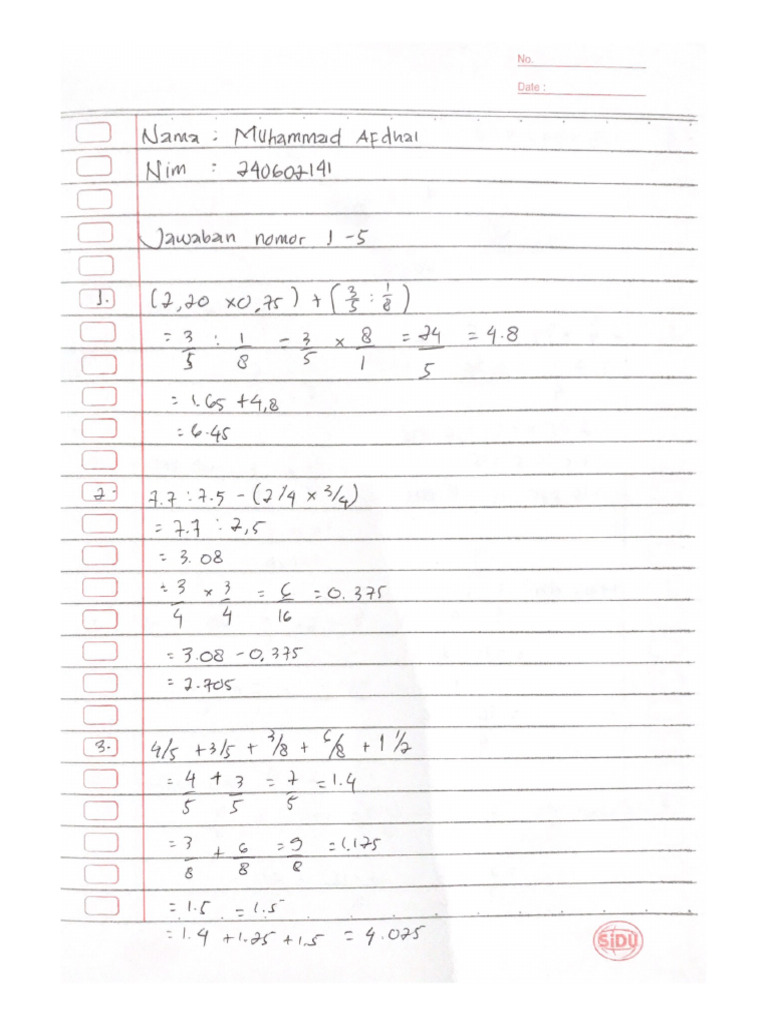 No.
Date :
Nama : Muhammad Afdhal
Nim : 240602141
Jawaban nomor 1 - 5
1. (2,20 x 0,75) + (3/5 : 1/8)
= 3/5 : 1/8 = 3/5 x 8/1 = 24/5 = 4.8
= 1.65 + 4,8
= 6.45
2. 7.7 : 2.5 - (2/4 x 3/4)
= 7.7 : 2,5
= 3.08
= 3/4 x 3/4 = 6/16 = 0.375
= 3.08 - 0,375
= 2.705
3. 4/5 + 3/5 + 3/8 + 6/8 + 1 1/2
= 4/5 + 3/5 = 7/5 = 1.4
= 3/8 + 6/8 = 9/8 = 1.125
= 1.5 = 1.5
= 1.4 + 1.25 + 1.5 = 4.025
SiDU